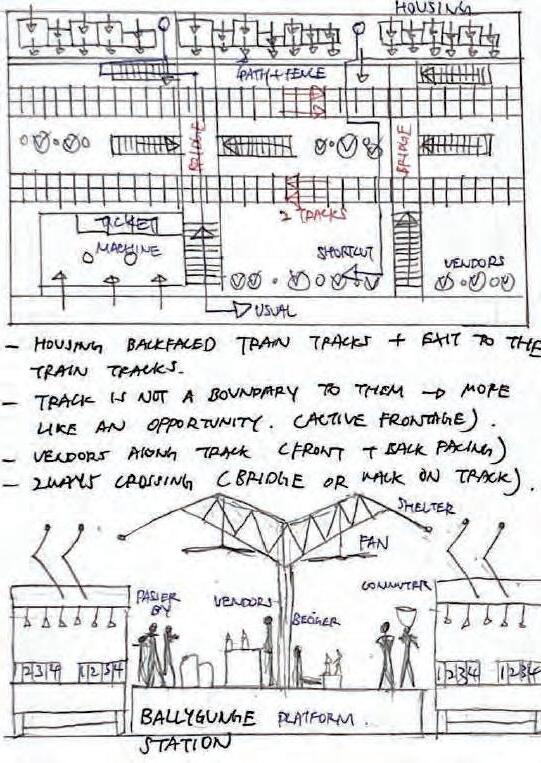 HOUSING
PATH + FENCE
BRIDGE
BRIDGE
2 TRACKS
TICKET
MACHINE
SHORTCUT
VENDORS
USUAL
- HOUSING BACKFACED TRAIN TRACKS + EXIT TO THE
TRAIN TRACKS.
- TRACK IS NOT A BOUNDARY TO THEM → MORE
LIKE AN OPPORTUNITY. (ACTIVE FRONTAGE).
- VENDORS ALONG TRACK (FRONT + BACK FACING)
- 2WAYS CROSSING (BRIDGE OR WALK ON TRACK).
SHELTER
FAN
PASSER
BY
VENDORS
BEGGER
COMMUTER
1234 1234
1234 1234
BALLYGUNGE PLATFORM.
STATION